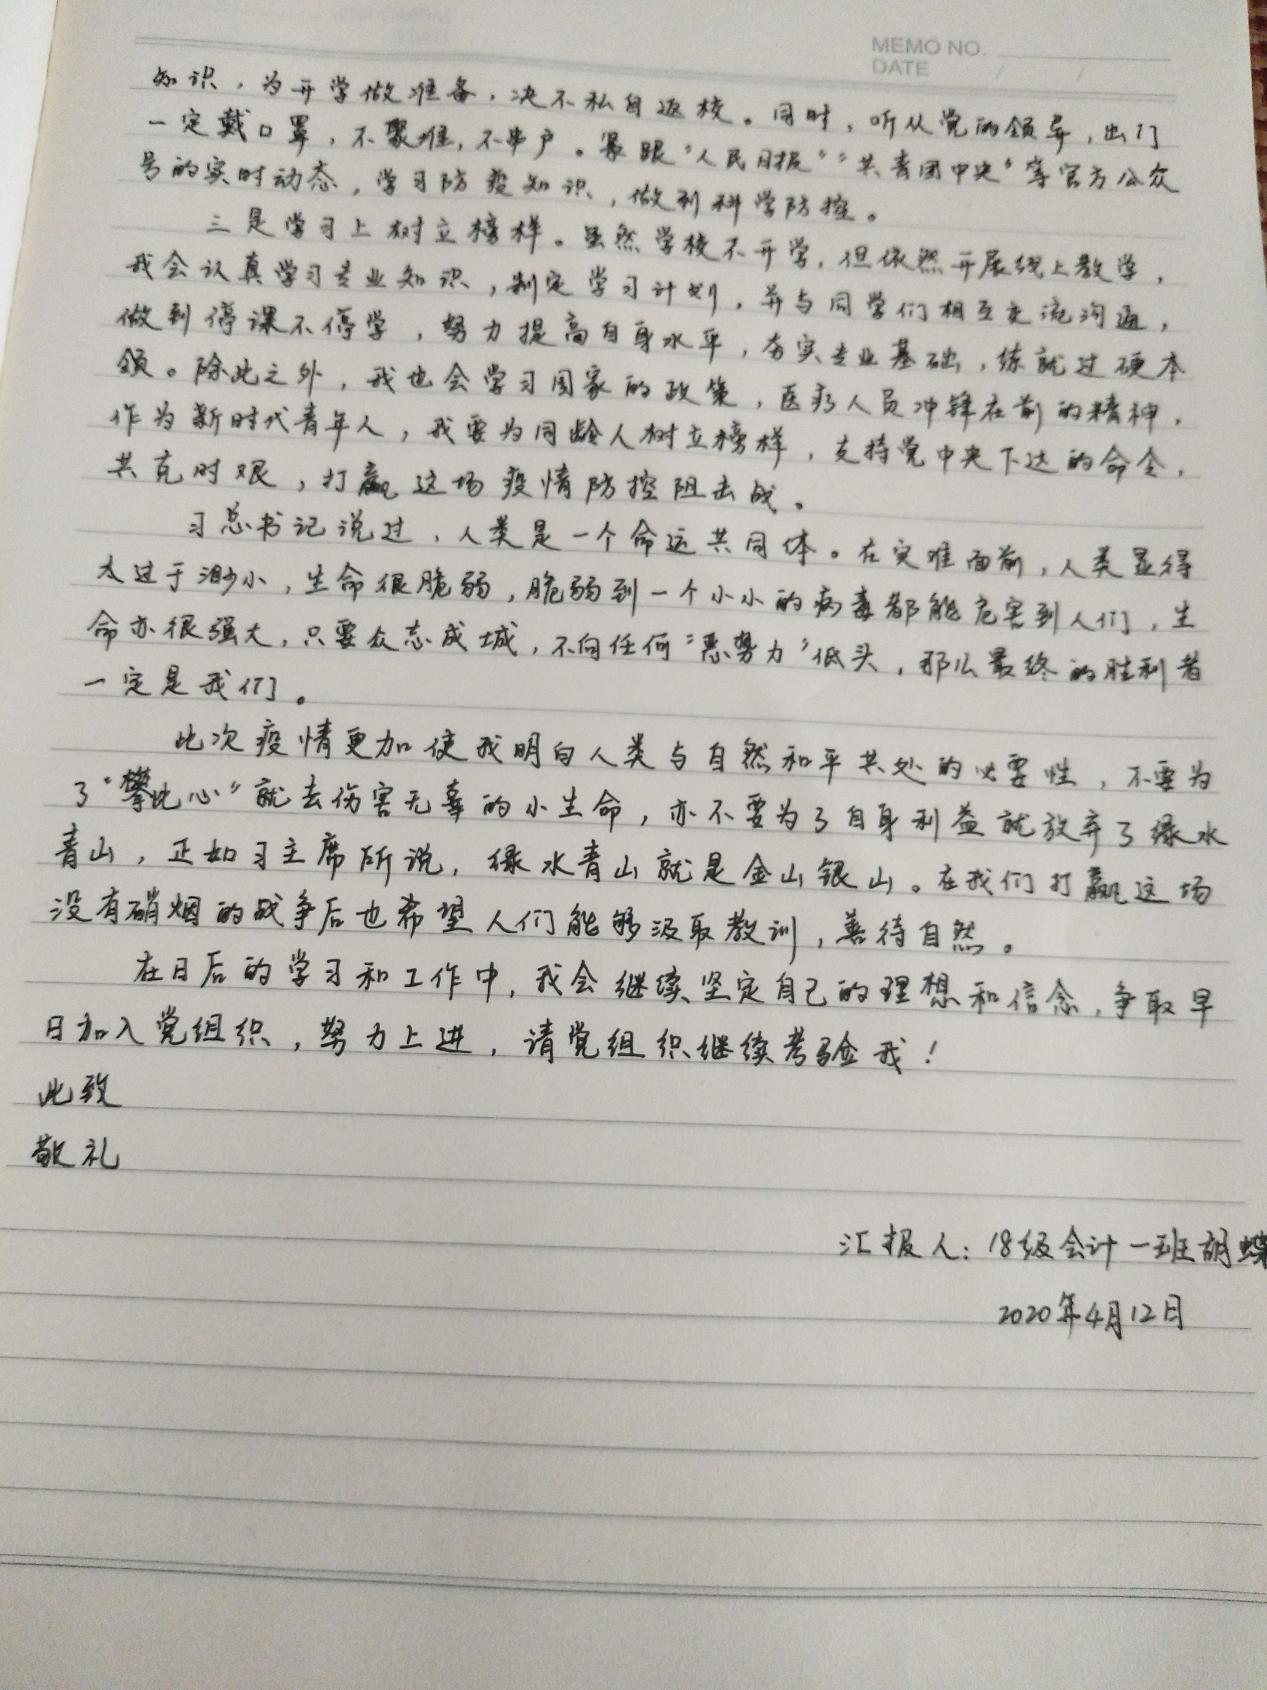 MEMO NO.
DATE / /
知识，为开学做准备，决不私自返校。同时，听从党的领导，出门
一定戴口罩，不聚堆，不串户。紧跟“人民日报”“共青团中央”等官方公众
号的实时动态，学习防疫知识，做到科学防控。
三是学习上树立榜样。虽然学校不开学，但依然开展线上教学，
我会认真学习专业知识，制定学习计划，并与同学们相互交流沟通，
做到停课不停学，努力提高自身水平，夯实专业基础，练就过硬本
领。除此之外，我也会学习国家的政策，医疗人员冲锋在前的精神，
作为新时代青年人，我要为同龄人树立榜样，支持党中央下达的命令，
共克时艰，打赢这场疫情防控阻击战。
习总书记说过，人类是一个命运共同体。在灾难面前，人类显得
太过于渺小，生命很脆弱，脆弱到一个小小的病毒都能危害到人们，生
命亦很强大，只要众志成城，不向任何“恶势力”低头，那么最终的胜利者
一定是我们。
此次疫情更加使我明白人类与自然和平共处的必要性，不要为
了“攀比心”就去伤害无辜的小生命，亦不要为了自身利益就放弃了绿水
青山，正如习主席所说，绿水青山就是金山银山。在我们打赢这场
没有硝烟的战争后也希望人们能够汲取教训，善待自然。
在日后的学习和工作中，我会继续坚定自己的理想和信念，争取早
日加入党组织，努力上进，请党组织继续考验我！
此致
敬礼
汇报人：18级会计一班胡蝶
2020年4月12日